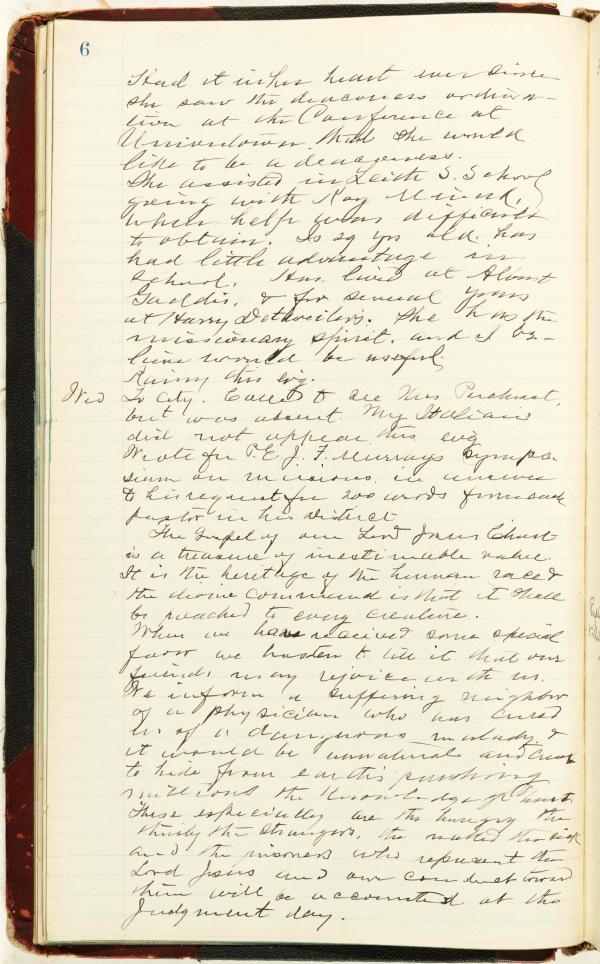 6
Had it in her heart ever since
she saw the deaconess ordina-
tion at the Conference at
Uniontown that she would
like to be a deaconess.
She assisted in Leith S. School
going with Ray
when help was difficult
to obtain. Is 29 yrs old. has
had little advantage in
school. Has lived at Albert
Gaddis, & for several years
at Harry Detweiler's. She has the
missionary spirit, and I be-
lieve would be useful.
Rainy this evg.
Wed To City. Called to see Mrs
but was absent. My Italians
did not appear this evg
Wrote for P.E. J. F. Murray's Sympo-
sium on missions, in answer
to his request for 200 words from each
pastor in his district
The Gospel of our Lord Jesus Christ
is a treasure of inestimable value.
It is the heritage of the human race &
the divine command is that it shall
be preached to every creature.
When we have received some special
favor we hasten to tell it that our
friends may rejoice with us.
We inform a suffering neighbor
of a physician who has cured
us of a dangerous malady, &
it would be unnatural and
to hide from earth's perishing
millions the knowledge of Christ.
These especially are the hungry the
thirsty the strangers, the naked the sick
and the prisoners who represent the
Lord Jesus and our conduct toward
them will be accounted at the
Judgment day.